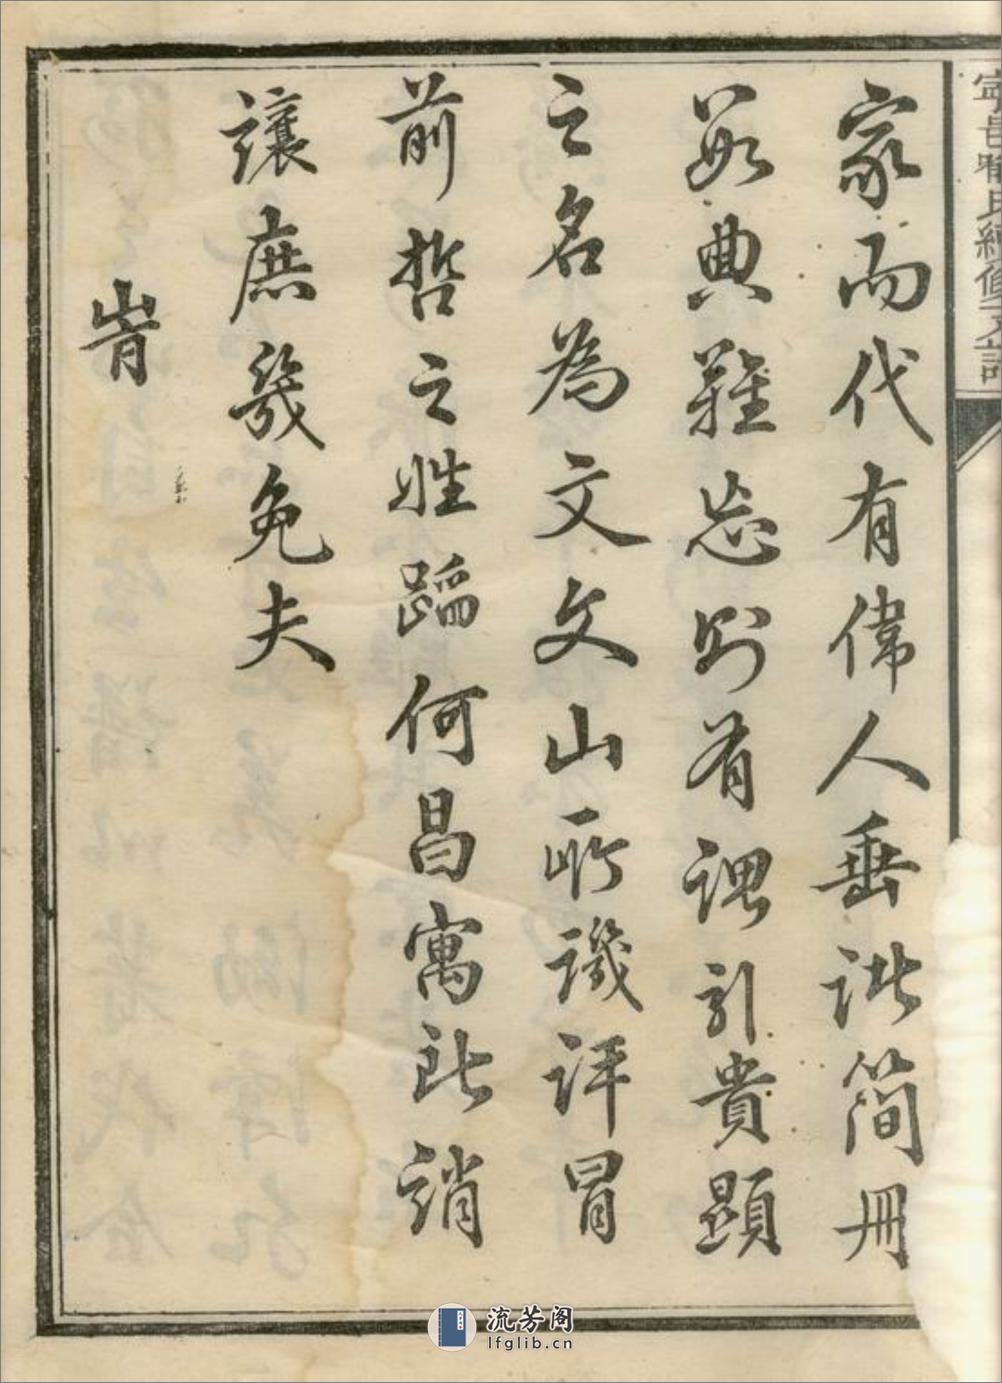 寧邑喻氏續修支譜
家而代有偉人垂訿簡冊
數典難忘別有引貴顯
之名為文文山所譏評冒
前哲之姓蹈何昌寓此誚
讓庶幾免夫
旹
流芳阁
lfglib.cn